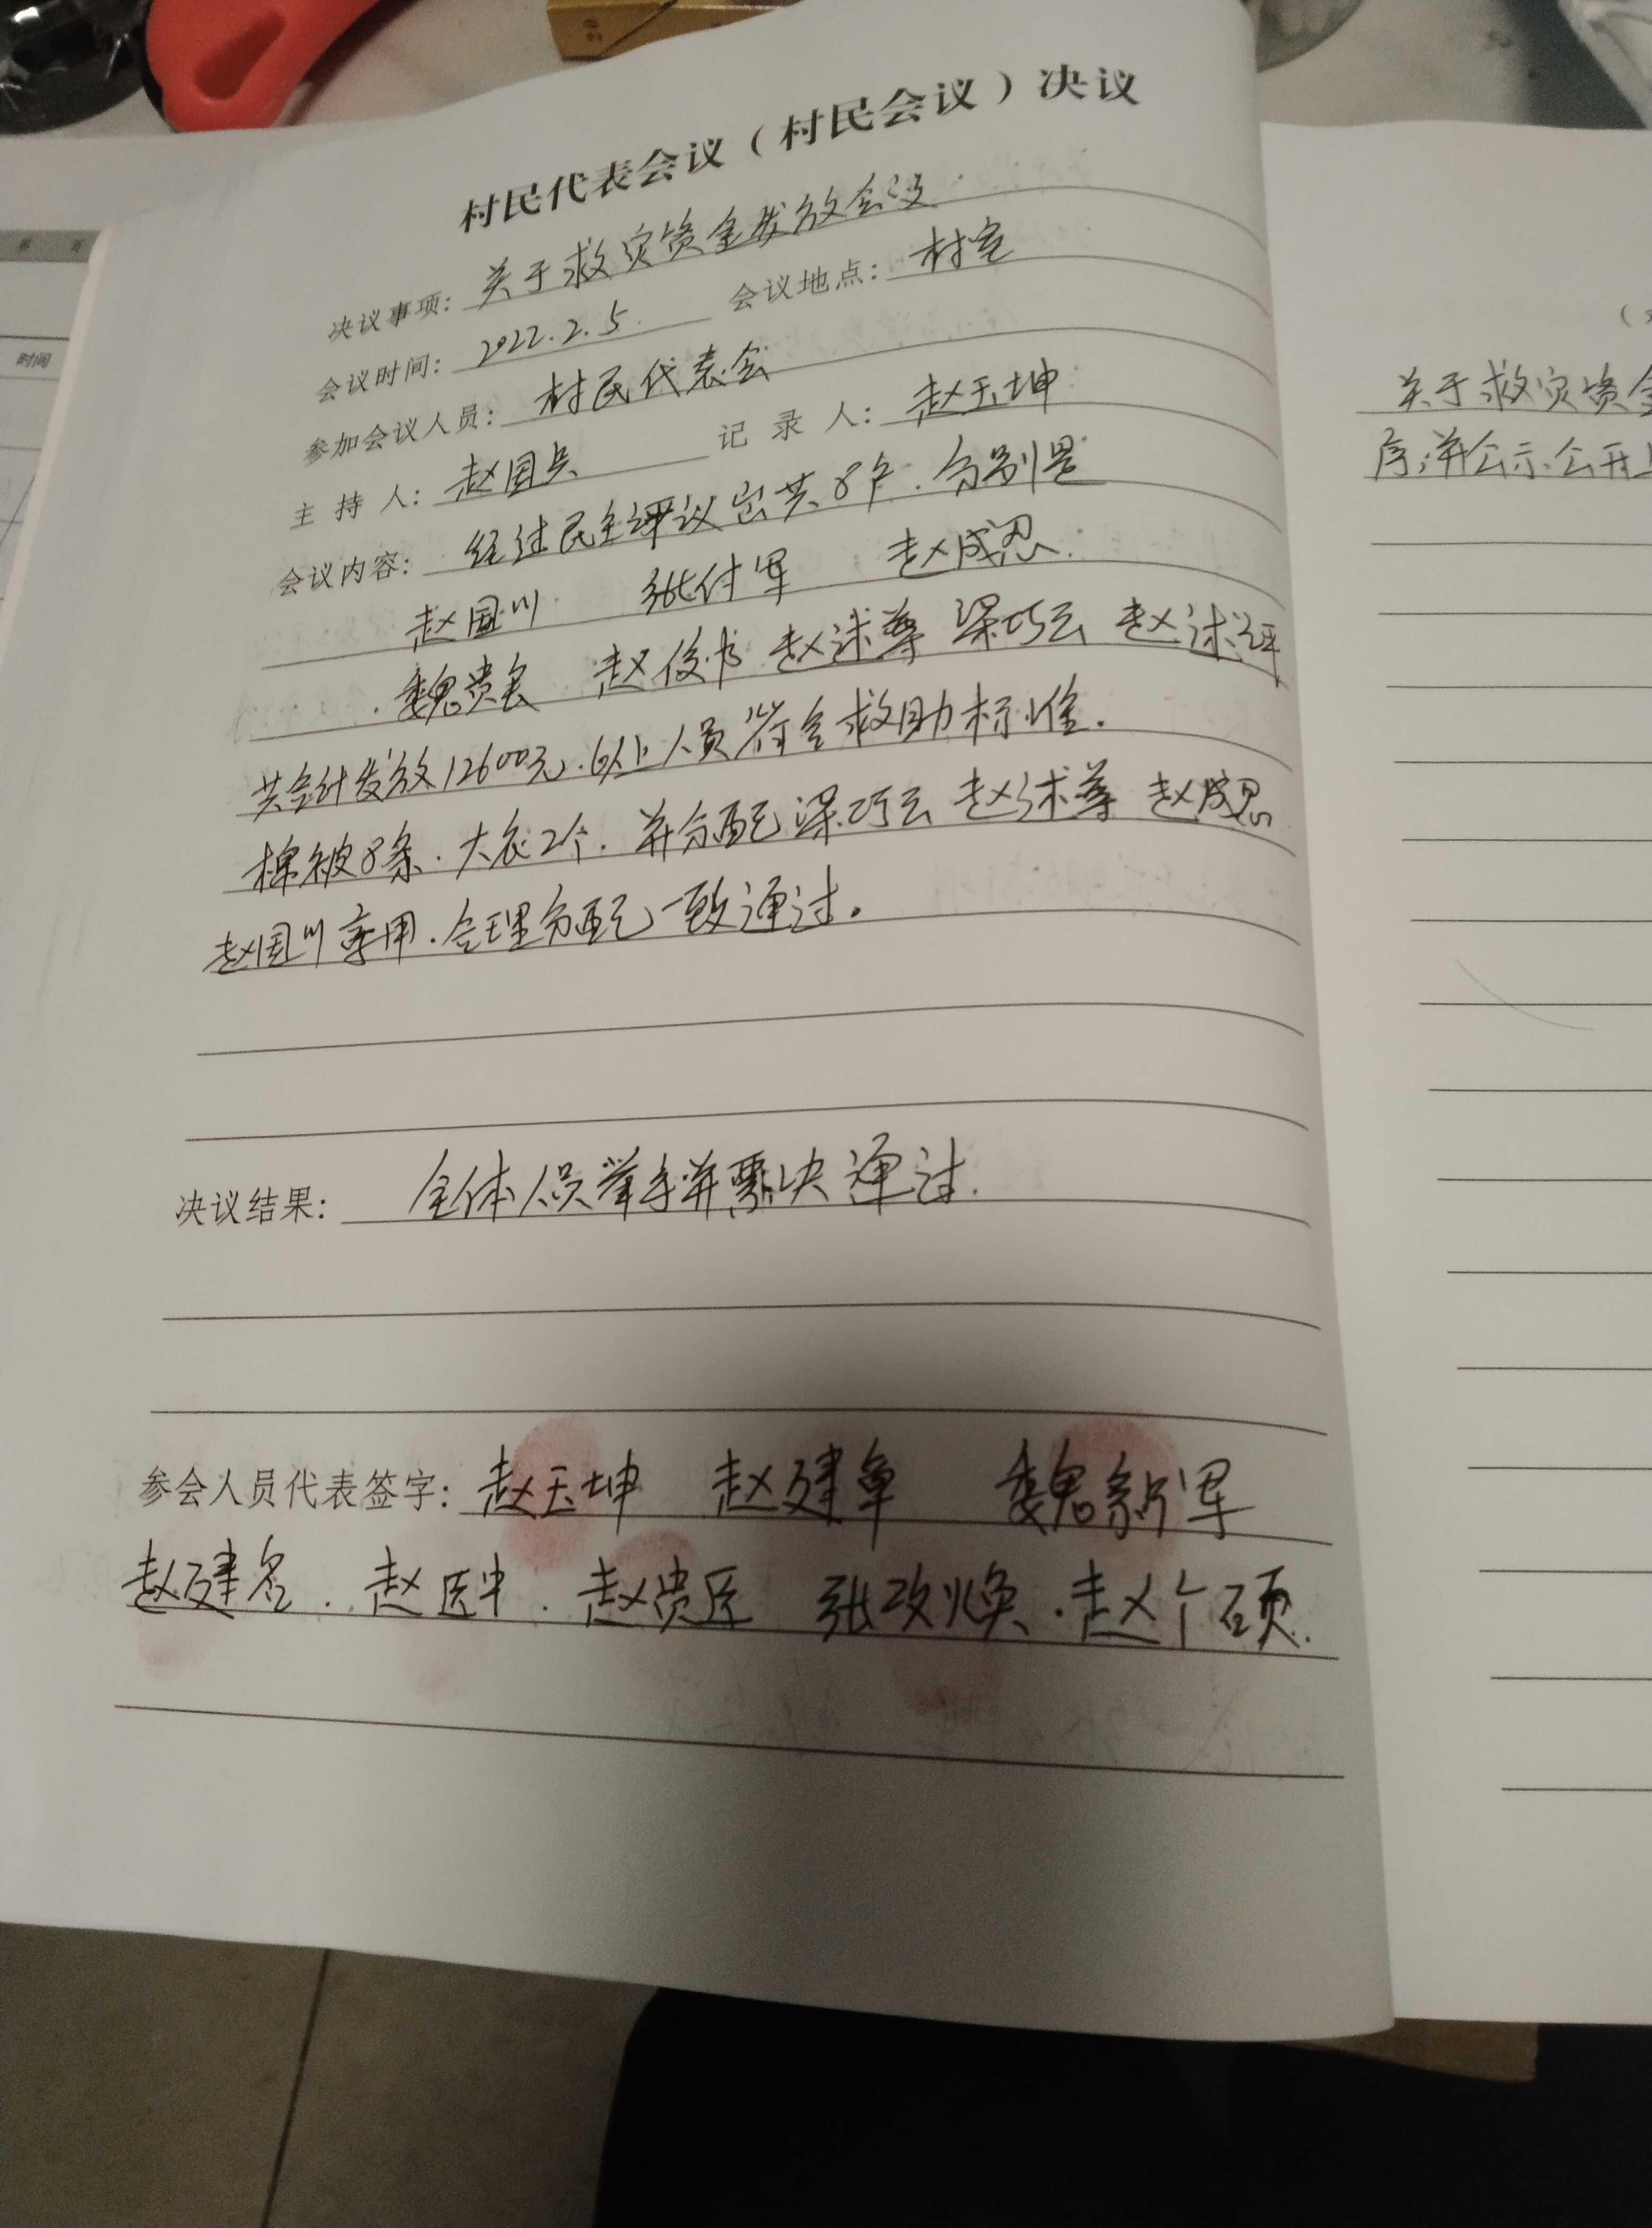 村民代表会议（村民会议）决议
决议事项：关于救灾资金发放会议
会议时间：2022.2.5 会议地点：村室
参加会议人员：村民代表会
主持人：赵国兵 记录人：赵玉坤
会议内容：经过民主评议出共8户.分别是
赵国川 张付军 赵成忍
魏贵 赵俊 赵 梁巧云 赵
共合计发放12600元.以上人员符合救助标准.
棉被8条.大衣2个.并分配梁巧云 赵 赵成忍
赵国川享用.合理分配一致通过。
决议结果：全体人员举手并票决通过.
参会人员代表签字：赵玉坤 赵建 魏新军
赵建 赵 赵贵 张改焕.赵 硕.
时间
关于救灾资金
序,并公示.公开